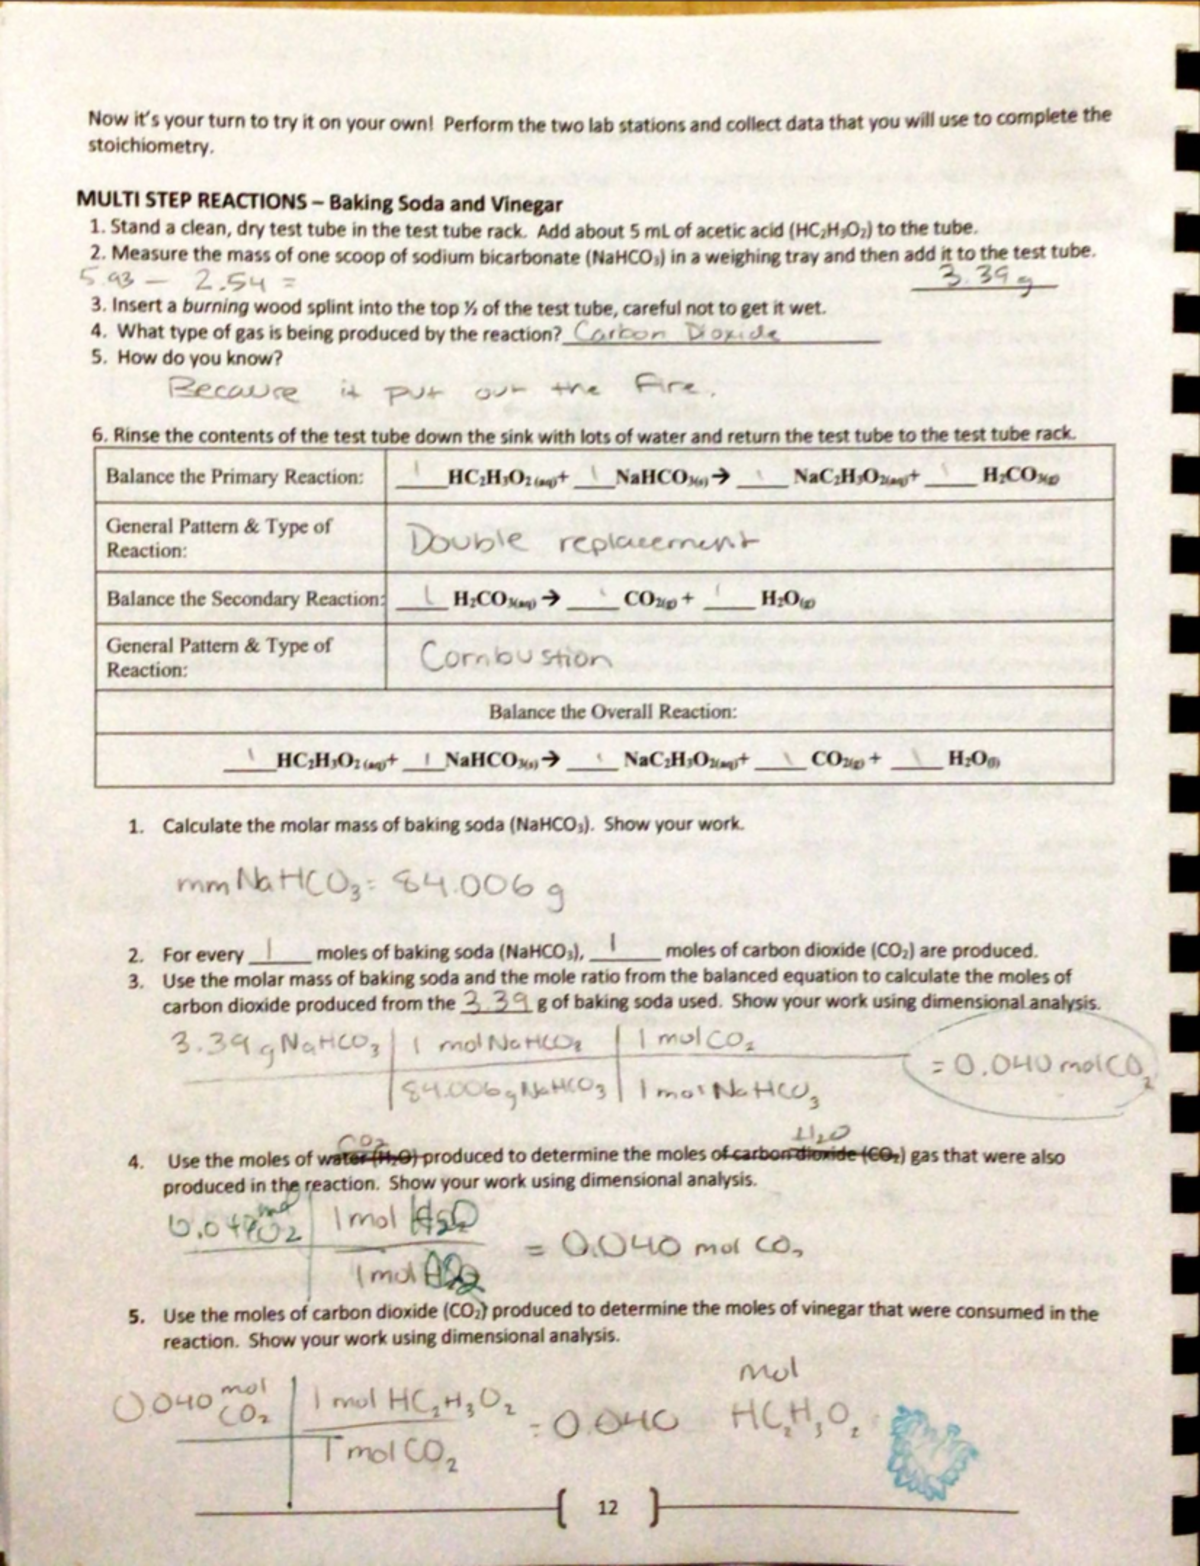 Now it's your turn to try it on your own! Perform the two lab stations and collect data that you will use to complete the
stoichiometry.
MULTI STEP REACTIONS – Baking Soda and Vinegar
1. Stand a clean, dry test tube in the test tube rack. Add about 5 mL of acetic acid (HC₂H₃O₂) to the tube.
2. Measure the mass of one scoop of sodium bicarbonate (NaHCO₃) in a weighing tray and then add it to the test tube.
5.93 – 2.54 = 3.39 g
3. Insert a burning wood splint into the top ½ of the test tube, careful not to get it wet.
4. What type of gas is being produced by the reaction? Carbon Dioxide
5. How do you know?
Because it put out the Fire.
6. Rinse the contents of the test tube down the sink with lots of water and return the test tube to the test tube rack.
Balance the Primary Reaction: 1 HC₂H₃O₂(aq) + 1 NaHCO₃(s) → 1 NaC₂H₃O₂(aq) + 1 H₂CO₃
General Pattern & Type of
Reaction:
Double replacement
Balance the Secondary Reaction: 1 H₂CO₃(aq) → 1 CO₂(g) + 1 H₂O(g)
General Pattern & Type of
Reaction:
Combustion
Balance the Overall Reaction:
1 HC₂H₃O₂(aq) + 1 NaHCO₃(s) → 1 NaC₂H₃O₂(aq) + 1 CO₂(g) + 1 H₂O(l)
1. Calculate the molar mass of baking soda (NaHCO₃). Show your work.
mm NaHCO₃ = 84.006 g
2. For every 1 moles of baking soda (NaHCO₃), 1 moles of carbon dioxide (CO₂) are produced.
3. Use the molar mass of baking soda and the mole ratio from the balanced equation to calculate the moles of
carbon dioxide produced from the 3.39 g of baking soda used. Show your work using dimensional analysis.
3.39 g NaHCO₃ | 1 mol NaHCO₃ | 1 mol CO₂
= 0.040 mol CO₂
84.006 g NaHCO₃ | 1 mol NaHCO₃
CO₂ H₂O
4. Use the moles of water (H₂O) produced to determine the moles of carbon dioxide (CO₂) gas that were also
produced in the reaction. Show your work using dimensional analysis.
mol
1 mol H₂O
= 0.040 mol CO₂
1 mol
5. Use the moles of carbon dioxide (CO₂) produced to determine the moles of vinegar that were consumed in the
reaction. Show your work using dimensional analysis.
mol
0.040 mol CO₂ | 1 mol HC₂H₃O₂ = 0.040 HC₂H₃O₂
1 mol CO₂
12